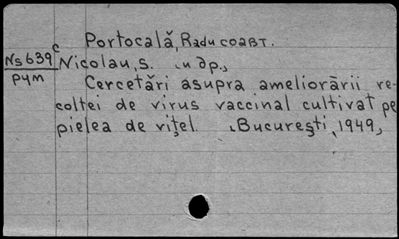 Portocală, Radu соавт.
Ns639c Nicolau, S. и др.,
рум
Cercetări asupra ameliorării re-
coltei de virus vaccinal cultivat pe
pielea de vițel. București, 1949,